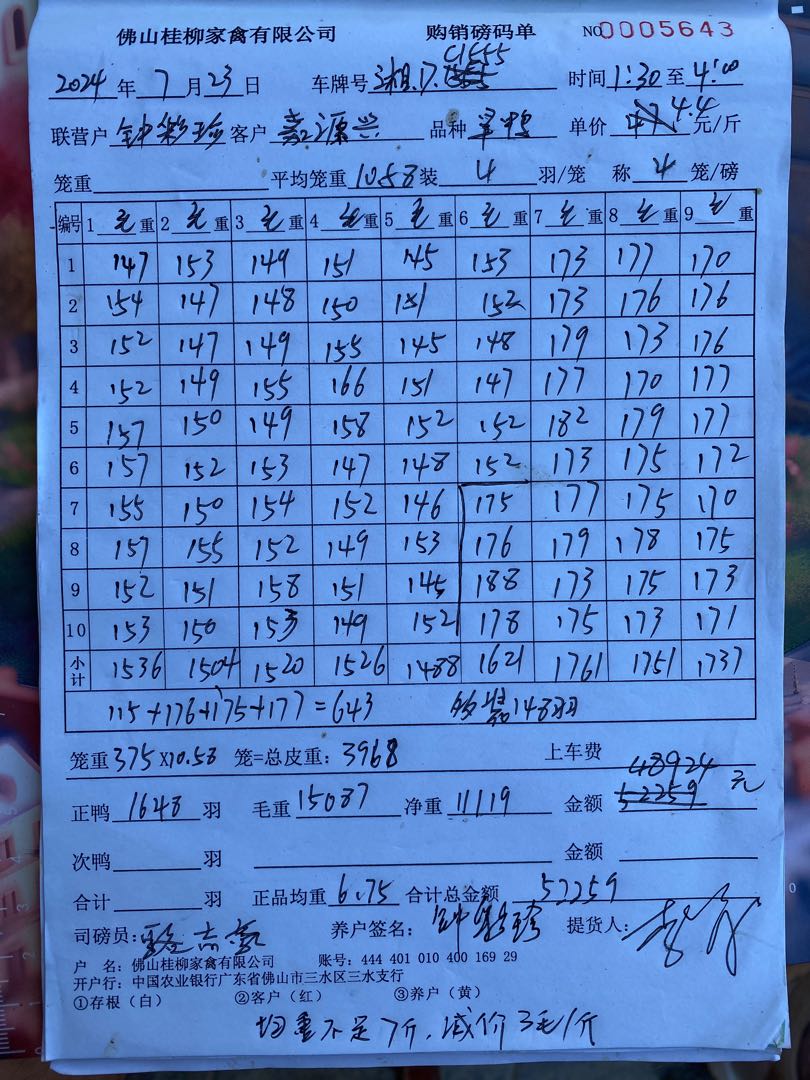 佛山桂柳家禽有限公司 购销磅码单 NO 0005643
2024 年 7 月 23 日 车牌号 湘D.C1555 时间 1:30 至 4:00
联营户 钟彩珍 客户 嘉源兴 品种 单价 4.7 4.4 元/斤
笼重 平均笼重 10.58 装 4 羽/笼 称 4 笼/磅
编号 1 毛 重 2 毛 重 3 毛 重 4 毛 重 5 毛 重 6 毛 重 7 毛 重 8 毛 重 9 毛 重
1 147 153 149 151 145 153 173 177 170
2 154 147 148 150 151 152 173 176 176
3 152 147 149 155 145 148 179 173 176
4 152 149 155 166 151 147 177 170 177
5 157 150 149 158 152 152 182 179 177
6 157 152 153 147 148 152 173 175 172
7 155 150 154 152 146 175 177 175 170
8 157 155 152 149 153 176 179 178 175
9 152 151 158 151 145 188 173 175 173
10 153 150 153 149 152 178 175 173 171
小计 1536 1504 1520 1526 1488 1621 1761 1751 1737
115+176+175+177=643 多装148羽
笼重 375×10.58 笼=总皮重: 3968 上车费
48924
正鸭 1648 羽 毛重 15087 净重 11119 金额 52259 元
次鸭 羽 金额
合计 羽 正品均重 6.75 合计总金额 52259
司磅员: 养户签名: 钟彩珍 提货人:
户 名: 佛山桂柳家禽有限公司 账号: 444 401 010 400 169 29
开户行: 中国农业银行广东省佛山市三水区三水支行
①存根（白） ②客户（红） ③养户（黄）
均重不足7斤，减价3毛1斤